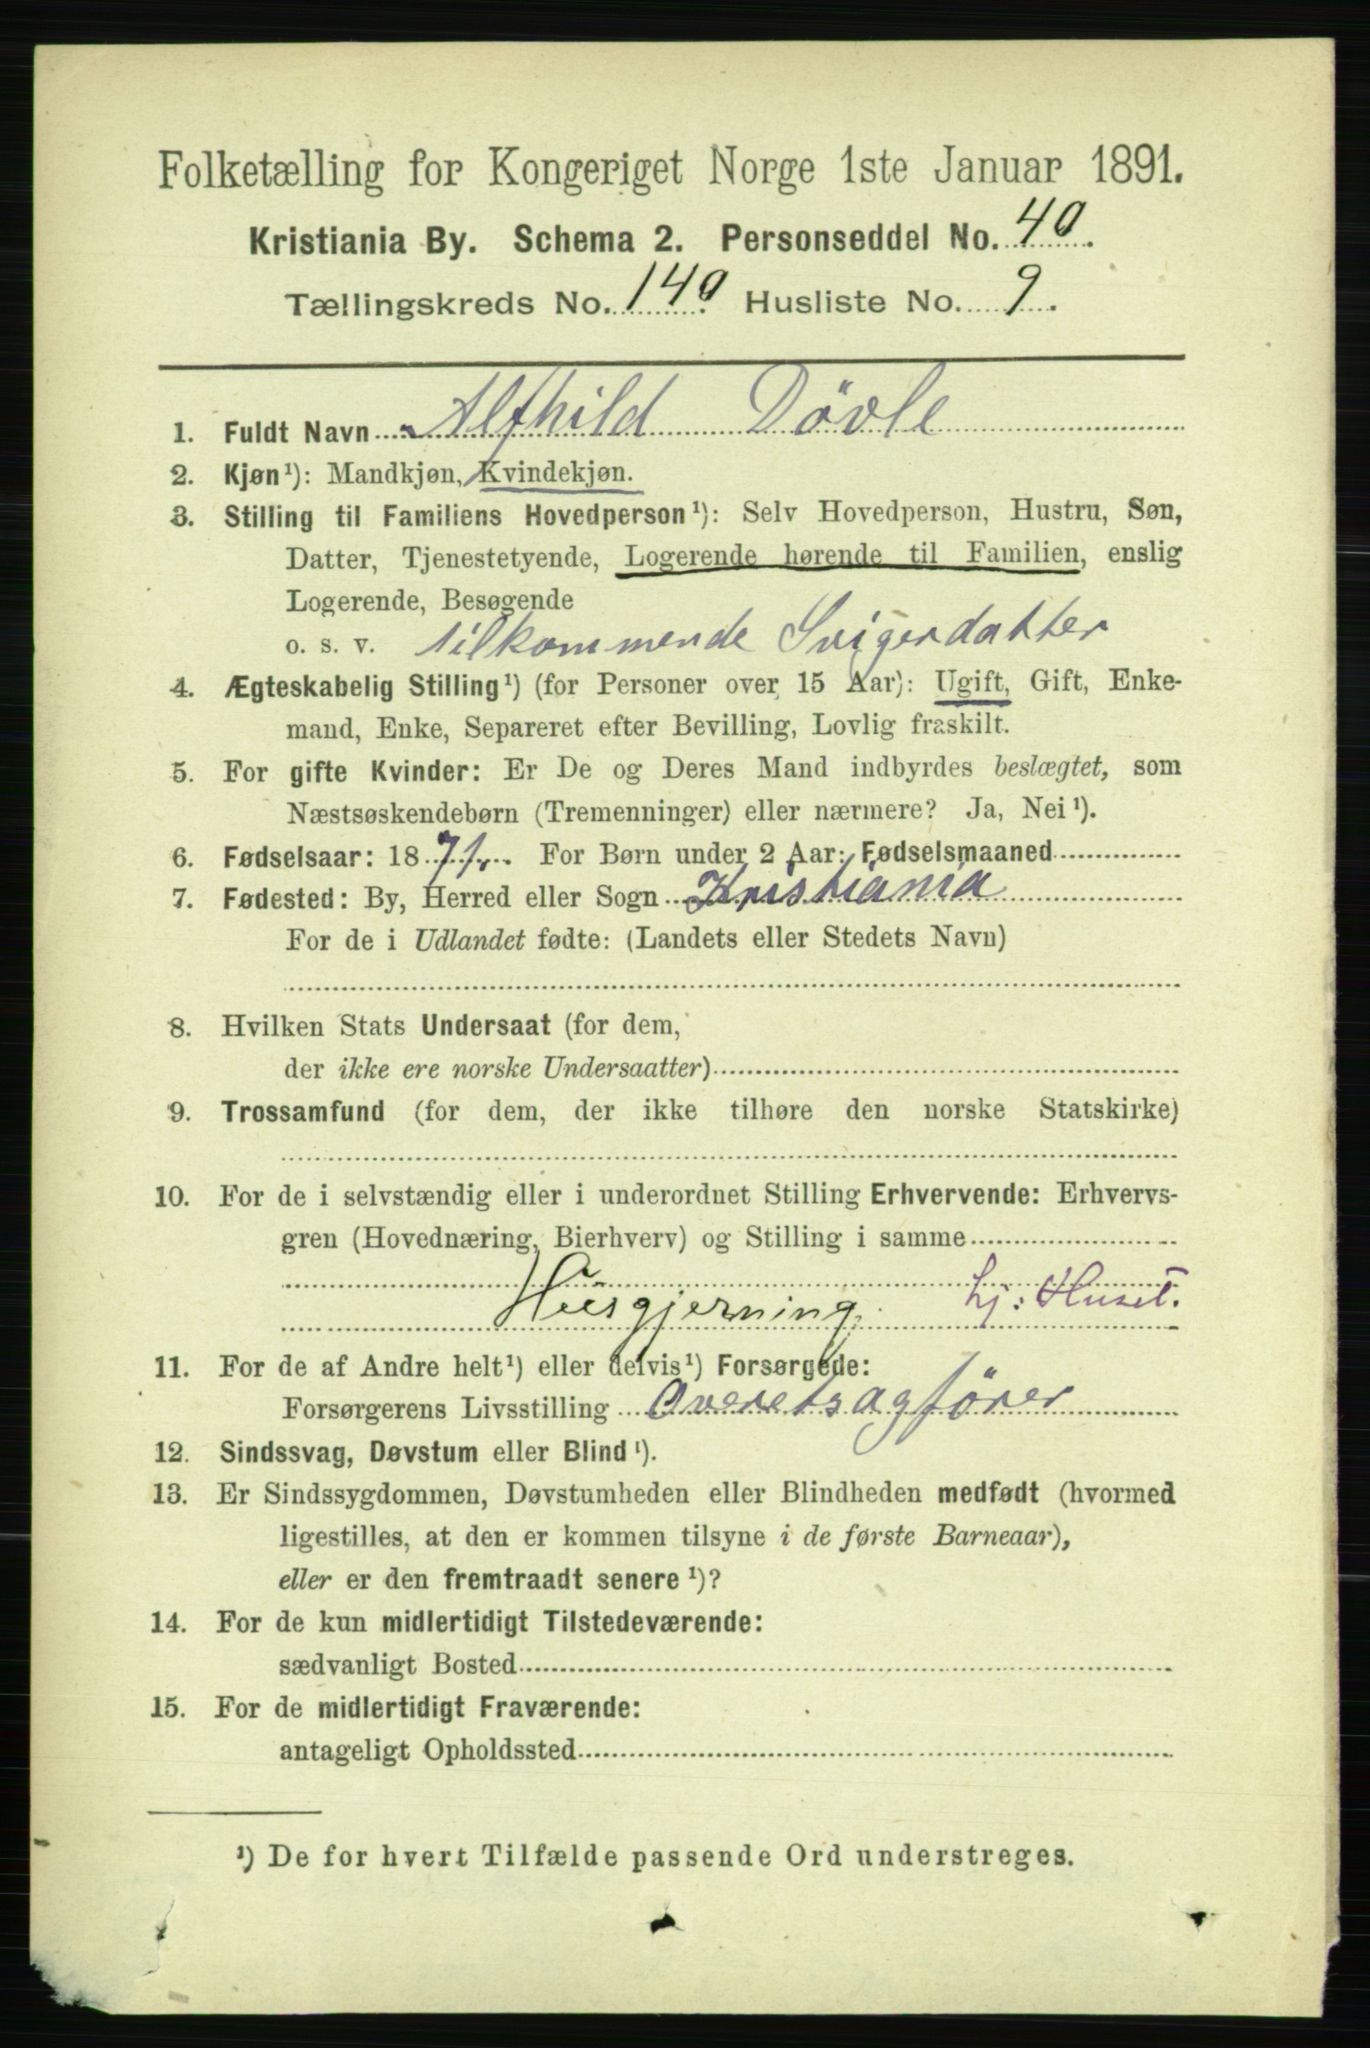 Folketælling for Kongeriget Norge 1ste Januar 1891.
Kristiania By. Schema 2. Personseddel No. 40.
Tællingskreds No. 140. Husliste No. 9.
1. Fuldt Navn Alfhild Dövle
2. Kjøn¹): Mandkjøn, Kvindekjøn.
3. Stilling til Familiens Hovedperson¹): Selv Hovedperson, Hustru, Søn,
Datter, Tjenestetyende, Logerende hørende til Familien, enslig
Logerende, Besøgende
o. s. v. tilkommende Svigerdatter
4. Ægteskabelig Stilling¹) (for Personer over 15 Aar): Ugift, Gift, Enke-
mand, Enke, Separeret efter Bevilling, Lovlig fraskilt.
5. For gifte Kvinder: Er De og Deres Mand indbyrdes beslægtet, som
Næstsøskendebørn (Tremenninger) eller nærmere? Ja, Nei¹).
6. Fødselsaar: 1871. For Børn under 2 Aar: Fødselsmaaned
7. Fødested: By, Herred eller Sogn Kristiania
For de i Udlandet fødte: (Landets eller Stedets Navn)
8. Hvilken Stats Undersaat (for dem,
der ikke ere norske Undersaatter)
9. Trossamfund (for dem, der ikke tilhøre den norske Statskirke)
10. For de i selvstændig eller i underordnet Stilling Erhvervende: Erhvervs-
gren (Hovednæring, Bierhverv) og Stilling i samme
Husgjerning. hj: Huset.
11. For de af Andre helt¹) eller delvis¹) Forsørgede:
Forsørgerens Livsstilling Overetsagförer
12. Sindssvag, Døvstum eller Blind¹).
13. Er Sindssygdommen, Døvstumheden eller Blindheden medfødt (hvormed
ligestilles, at den er kommen tilsyne i de første Barneaar),
eller er den fremtraadt senere¹)?
14. For de kun midlertidigt Tilstedeværende:
sædvanligt Bosted
15. For de midlertidigt Fraværende:
antageligt Opholdssted
¹) De for hvert Tilfælde passende Ord understreges.